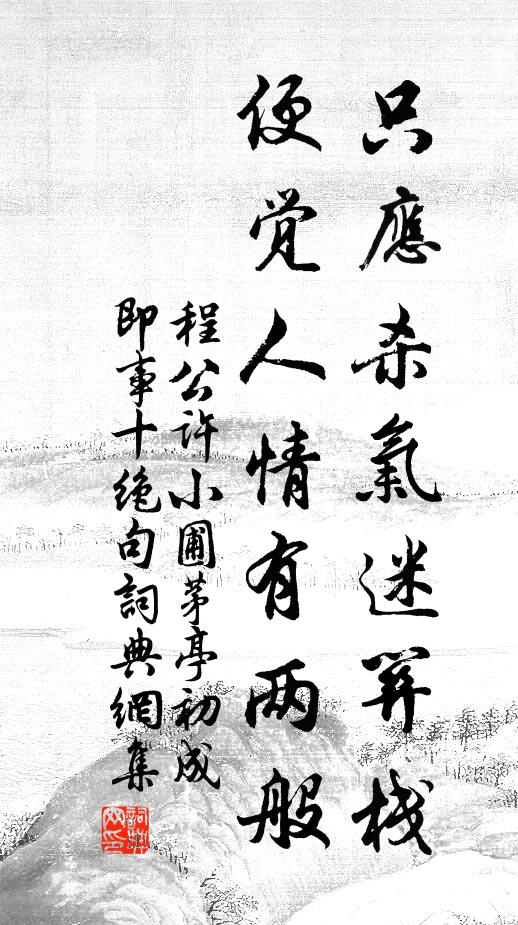 只應杀氣迷關栈
便觉人情有两般
程公许小圃茅亭初成
即事十絶句詞典網集